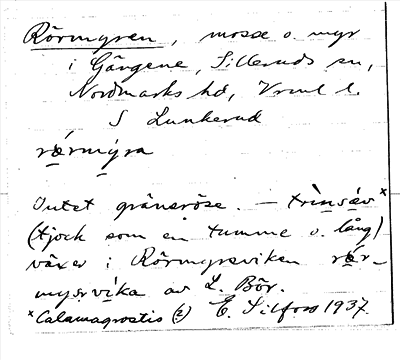 Rörmyren, mosse o. myr
i Gängene, Silleruds sn,
Nordmarks hd, Vrml l.
S Lunkerud
rǽrmýra
Intet gränsröse. – trìnsǻv x
(tjock som en tumme o. lång)
växer i Rörmyrsviken rǽr-
mysvika av L. Bör.
x Calamagrostis (?) E. Silfors 1937.